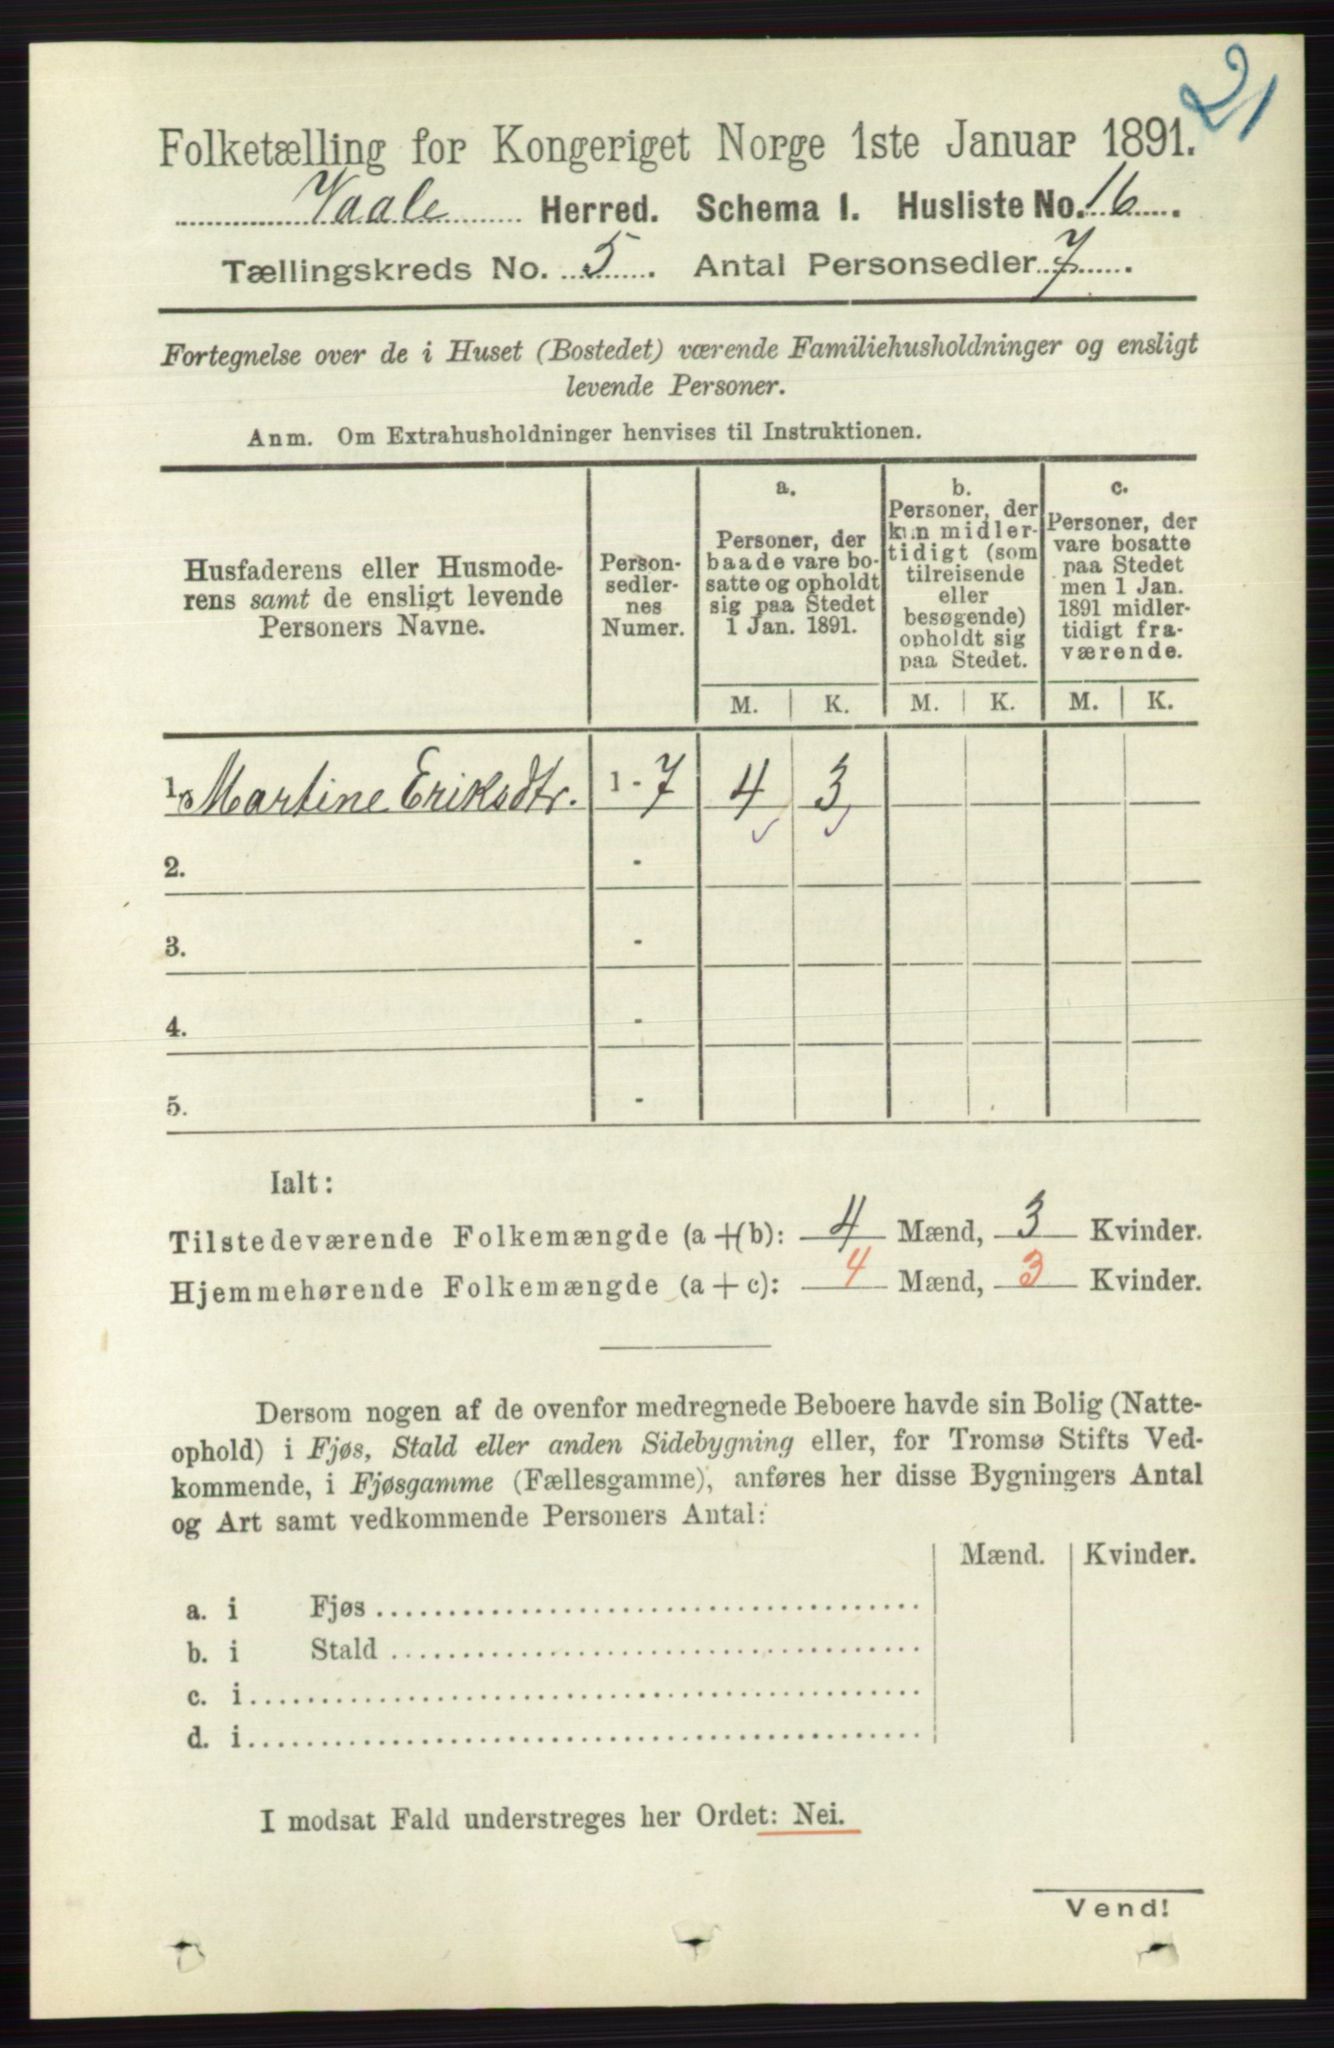 21
Folketælling for Kongeriget Norge 1ste Januar 1891.
Vaale Herred. Schema I. Husliste No. 16.
Tællingskreds No. 5. Antal Personsedler 7.
Fortegnelse over de i Huset (Bostedet) værende Familiehusholdninger og ensligt
levende Personer.
Anm. Om Extrahusholdninger henvises til Instruktionen.
Husfaderens eller Husmode-
rens samt de ensligt levende
Personers Navne.
Person-
sedler-
nes
Numer.
a.
Personer, der
baade vare bo-
satte og opholdt
sig paa Stedet
1 Jan. 1891.
b.
Personer, der
kun midler-
tidigt (som
tilreisende
eller
besøgende)
opholdt sig
paa Stedet.
c.
Personer, der
vare bosatte
paa Stedet
men 1 Jan.
1891 midler-
tidigt fra-
værende.
M. K. M. K. M. K.
1. Martine Eriksdtr. 1 - 7 4 3
2. -
3. -
4. -
5. -
Ialt:
Tilstedeværende Folkemængde (a+b): 4 Mænd, 3 Kvinder.
Hjemmehørende Folkemængde (a + c): 4 Mænd, 3 Kvinder.
Dersom nogen af de ovenfor medregnede Beboere havde sin Bolig (Natte-
ophold) i Fjøs, Stald eller anden Sidebygning eller, for Tromsø Stifts Ved-
kommende, i Fjøsgamme (Fællesgamme), anføres her disse Bygningers Antal
og Art samt vedkommende Personers Antal:
Mænd. Kvinder.
a. i Fjøs
b. i Stald
c. i
d. i
I modsat Fald understreges her Ordet: Nei.
Vend!